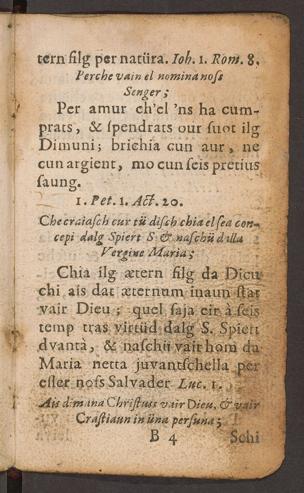 tern filg per natüra. Ioh. 1. Rom. 8.
Perche vain el nomina noss
Senger;
Per amur ch'el 'ns ha cum-
prats, & spendrats our suot ilg
Dimuni; brichia cun aur, ne
cun argient, mo cun seis pretius
saung.
1. Pet. 1. Act. 20.
Che craiasch cur tü disch chia el sea con-
cepi dalg Spiert S. & naschü d'illa
Vergine Maria;
Chia ilg ætern filg da Dieu
chi ais dat æternum inaun stat
vair Dieu; quel saja eir à seis
temp tras virtüd dalg S. Spiert
dvantà, & naschü vair hom da
Maria netta juvantschella per
esser noss Salvader Luc. 1.
Ais dimana Christus vair Dieu, & vair
Crastiaun in üna persuna;
B 4 Schi